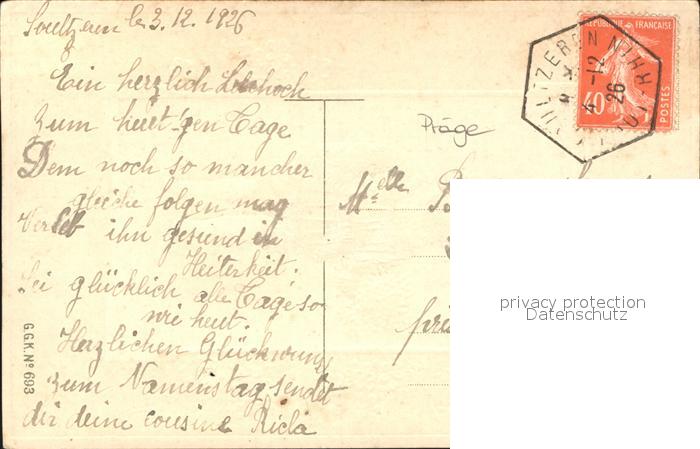 Soultzeren le 3.12.1926
Ein herzlich Lebehoch
zum heut'gen Tage
Dem noch so mancher
gleiche folgen mag
Verleb ihn gesund in
Heiterkeit.
Sei glücklich alle Tage so
wie heut.
Herzlichen Glückwunsch
zum Namenstag sendet
dir deine cousine Ricla
G.G.K. Nº 693
Präge
Melle
REPUBLIQUE FRANÇAISE
POSTES
40
HAUT-RHIN
4 -12
26
privacy protection
Datenschutz